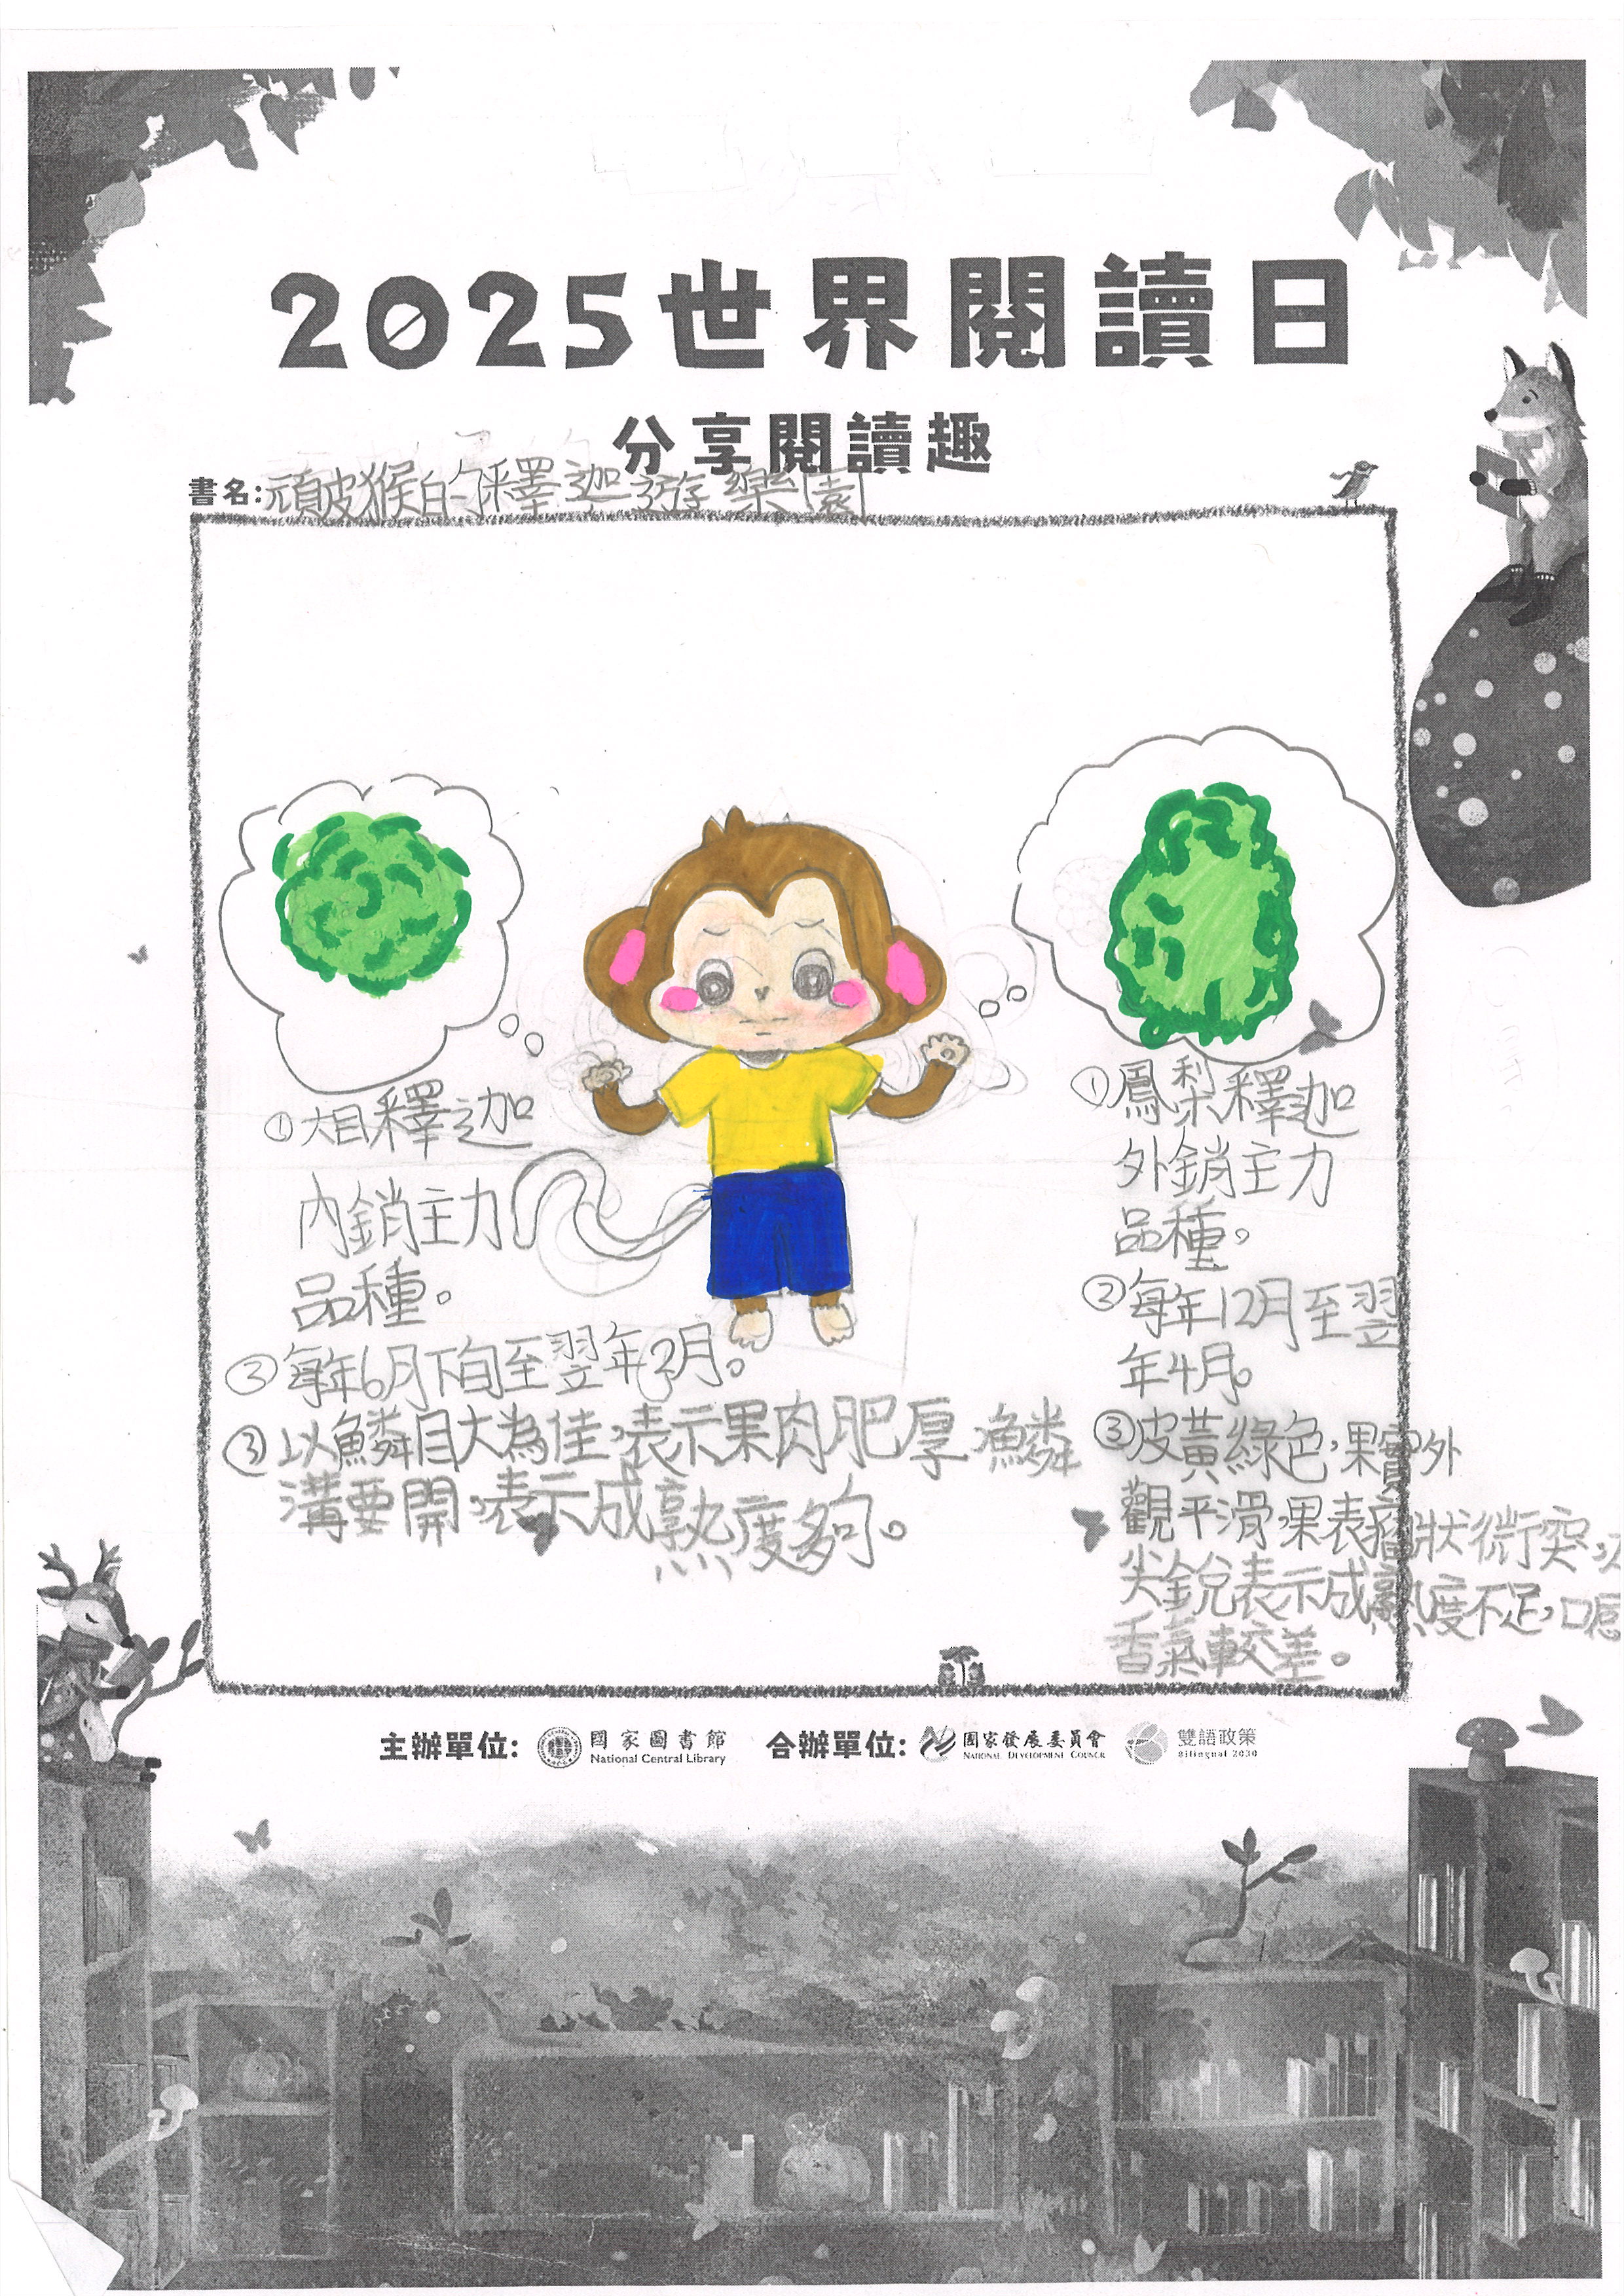 2025世界閱讀日
分享閱讀趣
書名:頑皮猴的釋迦遊樂園
①大目釋迦
內銷主力
品種。
②每年6月下旬至翌年2月。
③以鱗目大為佳,表示果肉肥厚,鱗
溝要開,表示成熟度夠。
①鳳梨釋迦
外銷主力
品種。
②每年12月至翌
年4月。
③皮黃綠色,果實外
觀平滑,果表瘤狀微突,以
尖銳表示成熟度不足,口感
香氣較差。
主辦單位: 國家圖書館 National Central Library 合辦單位: 國家發展委員會 NATIONAL DEVELOPMENT COUNCIL 雙語政策 Bilingual 2030